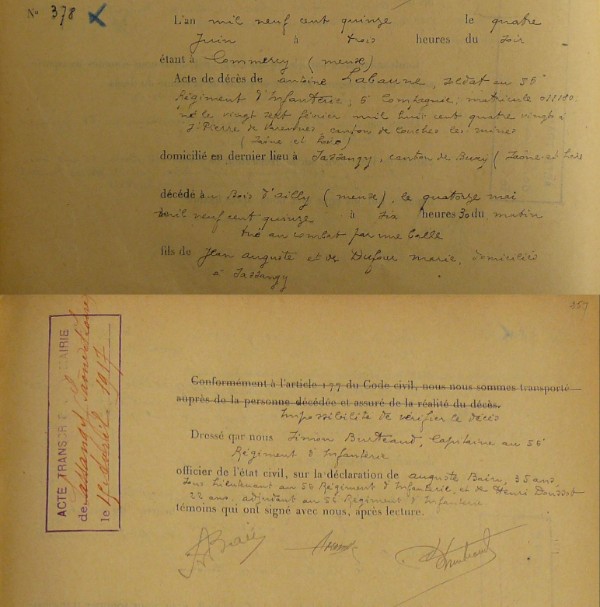 N° 378
L'an mil neuf cent quinze le quatre
Juin à trois heures du soir
étant à Commercy (meuse)
Acte de décès de antoine Labaune, soldat au 56e
Régiment d'Infanterie, 5e Compagnie, matricule
né le vingt sept février mil huit cent quatre vingts à
St Pierre de Varennes canton de Couches les mines
(Saône et Loire)
domicilié en dernier lieu à Jassangy, canton de Buxy (Saône et Loire
décédé au Bois d'ailly (meuse), le quatorze mai
mil neuf cent quinze à six heures 30 du matin
tué au combat par une balle
fils de Jean auguste et de Dufour marie, domiciliés
à Jassangy
257
ACTE TRANSCRIT MAIRIE
de
le 1er avril 1917
Conformément à l'article 77 du Code civil, nous nous sommes transporté
auprès de la personne décédée et assuré de la réalité du décès.
Impossibilité de vérifier le décès
Dressé par nous Simon, Capitaine au 56e
Régiment d'Infanterie
officier de l'état civil, sur la déclaration de auguste, 35 ans,
Sous Lieutenant au 56 Régiment d'Infanterie et de Henri
22 ans, adjudant au 56 Régiment d'Infanterie
témoins qui ont signé avec nous, après lecture.